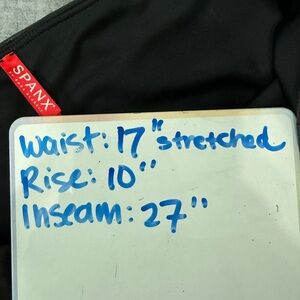 SPANX
Waist: 17" stretched
Rise: 10"
Inseam: 27"